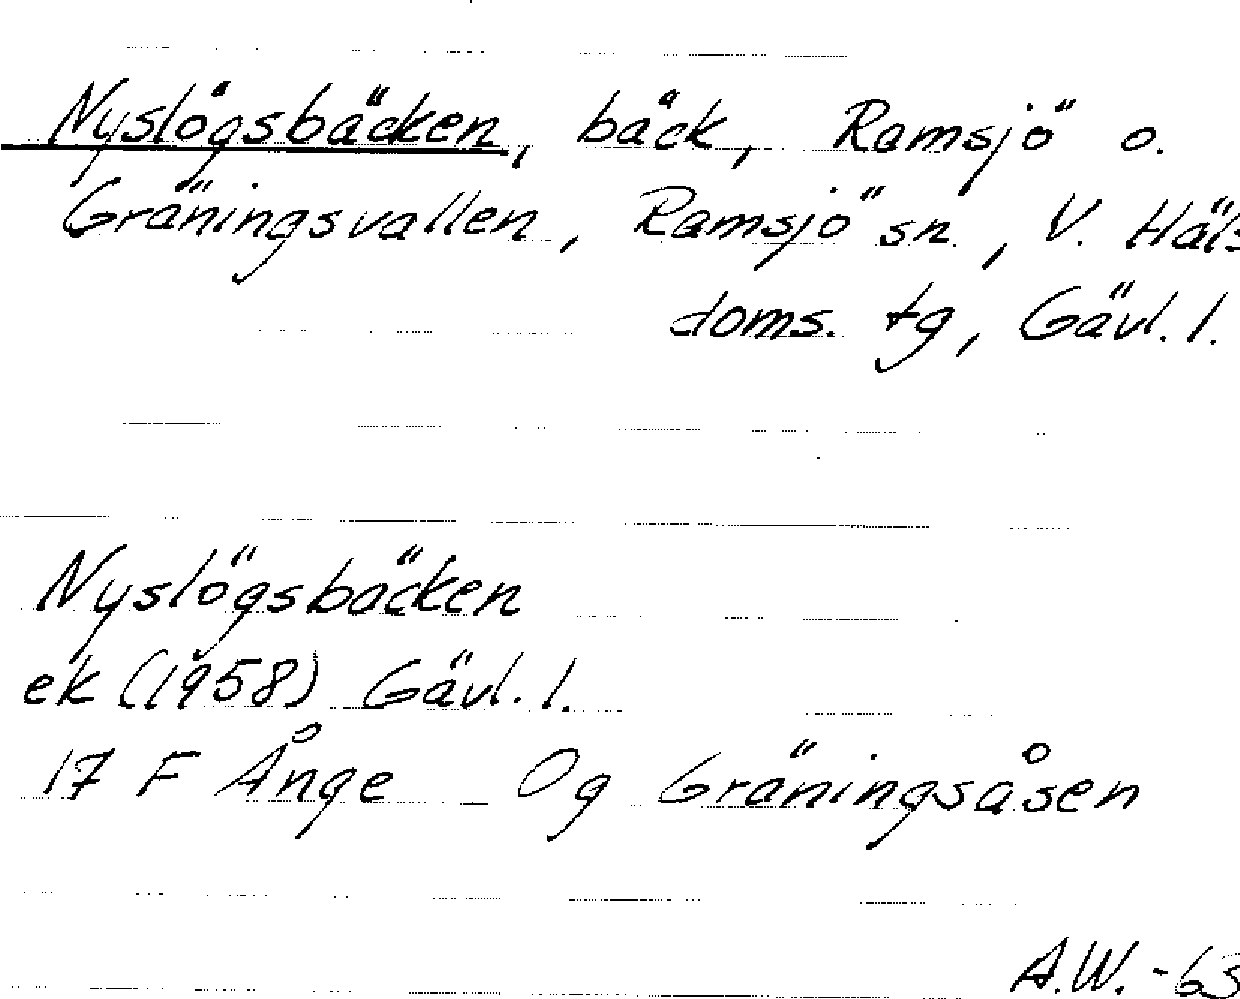 Nyslögsbäcken, bäck, Ramsjö o.
Gräningsvallen, Ramsjö sn, V. Häls
doms. tg, Gävl. l.
Nyslögsbäcken
ek (1958) Gävl. l.
17 F Ånge Og Gräningsåsen
A.W.-63